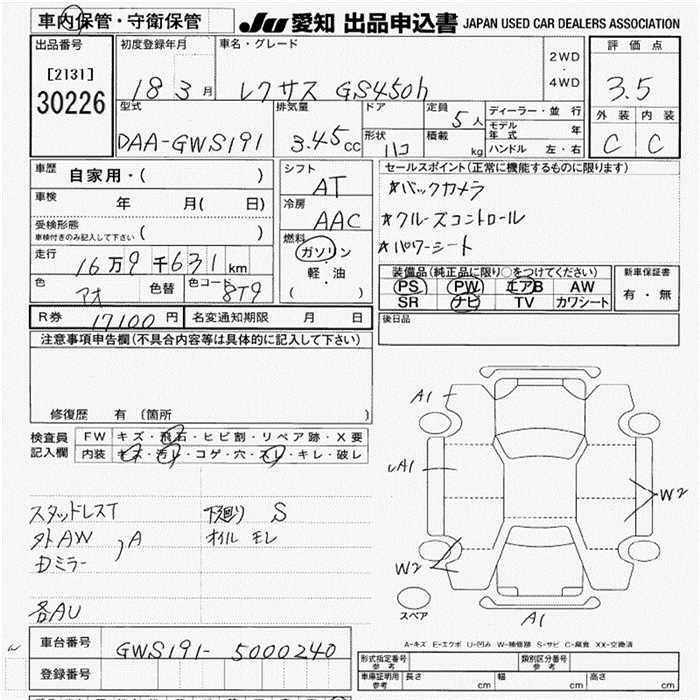 車内保管・守衛保管
JU 愛知 出品申込書 JAPAN USED CAR DEALERS ASSOCIATION
出品番号
[2131]
30226
初度登録年月
18 3 月
車名・グレード
レクサス GS450h
2WD
・
4WD
評価点
3.5
外装 内装
C C
型式
DAA-GWS191
排気量
3.45 cc
ドア
形状
ハコ
定員
5 人
積載
kg
ディーラー・並行
モデル年式 年
ハンドル 左・右
車歴
自家用・( )
車検
年 月( 日)
受検形態
車検付きのみ記入して下さい ( )
走行
16万9千631km
色
アオ
色替
色コード
8T9
シフト
AT
冷房
AAC
燃料
ガソリン
軽・油
( )
セールスポイント(正常に機能するものに限ります)
☆バックカメラ
☆クルーズコントロール
☆パワーシート
装備品(純正品に限り○をつけてください)
PS PW エアB AW
SR ナビ TV カワシート
新車保証書
有・無
R券 17100円
名変通知期限 月 日
後日品
注意事項申告欄(不具合内容等は具体的に記入して下さい)
修復歴 有 〔箇所 〕
検査員
記入欄
FW キズ・飛石・ヒビ割・リペア跡・X要
内装 キズ・汚レ・コゲ・穴・スレ・キレ・破レ
スタッドレスT
外AW
Dミラー
A
各AU
下廻り S
オイル モレ
A1
A1
W2
W2
A1
スペア
A-キズ E-エクボ U-凹み W-補修跡 S-サビ C-腐食 XX-交換済
車台番号
GWS191-5000240
登録番号
形式指定番号
参考
類別区分番号
参考
車庫証明用
参考
長さ cm
幅 cm
高さ cm